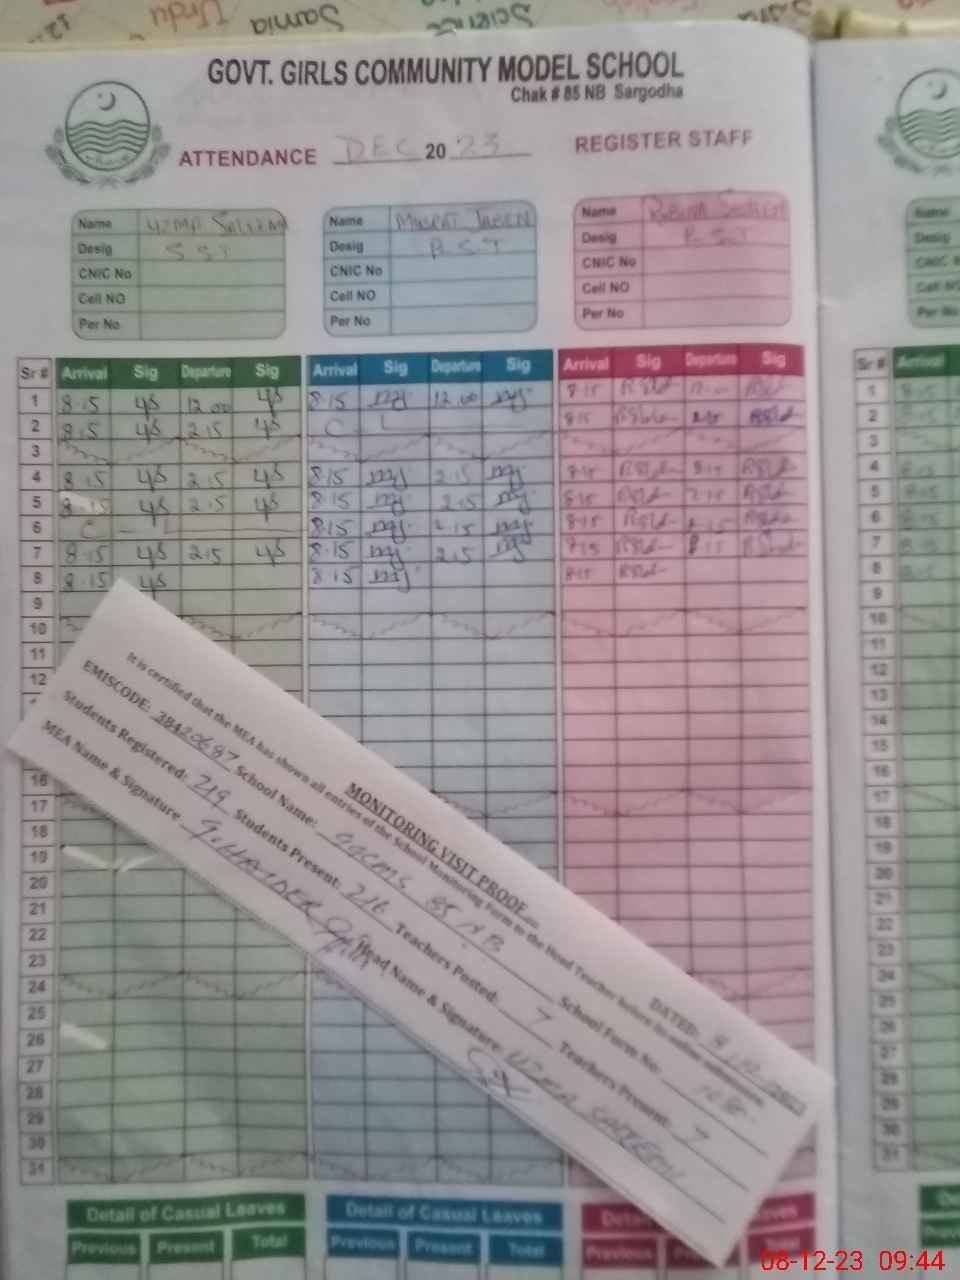 Urdu Samia Science
GOVT. GIRLS COMMUNITY MODEL SCHOOL
Chak # 85 NB Sargodha
ATTENDANCE DEC 2023 REGISTER STAFF
Name UZMA SALEEM
Desig S S T
CNIC No
Cell NO
Per No
Name MUSRAT JABEN
Desig P.S.T
CNIC No
Cell NO
Per No
Name RUBINA
Desig P.S.T
CNIC No
Cell NO
Per No
Sr # Arrival Sig Departure Sig Arrival Sig Departure Sig Arrival Sig Departure Sig Sr # Arrival
1 8.15 ys 12.00 ys 8.15 mj 12.00 mj 8.15 1
2 8.15 ys 2.15 ys C L 8.15 2
3 3
4 8.15 ys 2.15 ys 8.15 mj 2.15 mj 8.15 4
5 8.15 ys 2.15 ys 8.15 mj 2.15 mj 8.15 5
6 C L 8.15 mj 2.15 mj 8.15 6
7 8.15 ys 2.15 ys 8.15 mj 2.15 mj 8.15 7
8 8.15 ys 8.15 mj 8.15 8
9 9
10 10
11 11
12 12
13
14
15
16 16
17 17
18 18
19 19
20 20
21 21
22 22
23 23
24 24
25 25
26 26
27 27
28 28
29 29
30 30
31 31
MONITORING VISIT PROOF
DATED: 8/12/2023
It is certified that the MEA has shown all entries of the School Monitoring Form to the Head Teacher before its online submission.
EMISCODE: 38420687 School Name: GGCMS 85 NB School Form No.
Students Registered: 219 Students Present: 216 Teachers Posted: 7 Teachers Present: 7
MEA Name & Signature G. HAIDER Head Name & Signature: UZMA SALEEM
Detail of Casual Leaves
Previous Present Total
Detail of Casual Leaves
Previous Present Total
Previous Total
08-12-23 09:44